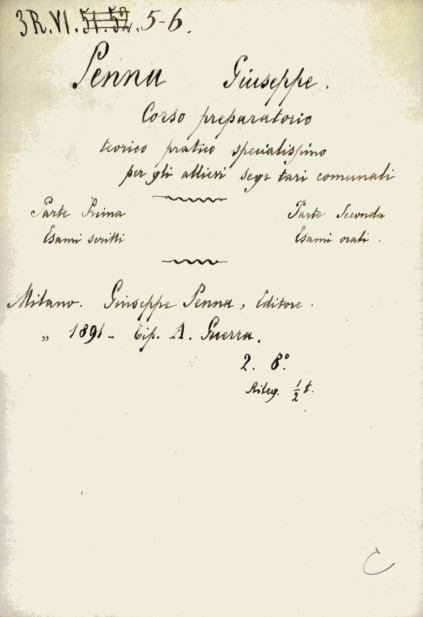 3R.VI. 51.52. 5-6.
Penna Giuseppe.
Corso preparatorio
teorico pratico specialissimo
per gli allievi segretari comunali
Parte Prima Parte Seconda
Esami scritti Esami orali.
Milano. Giuseppe Penna, Editore.
„ 1891 - Tip. A. Guerra.
2. 8°.
Rileg. ½ t.
C